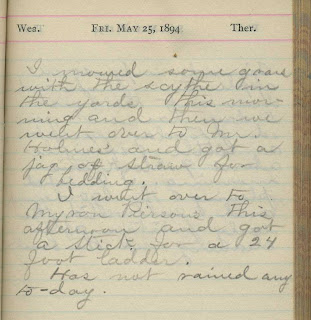 Wea. Fri. May 25, 1894 Ther.
I mowed some grass
with the scythe in
the yards this mor-
ning and then we
went over to Mr.
Holmes' and got a
jag of straw for
bedding.
I went over to
Myron Persons this
afternoon and got
a stick for a 24
foot ladder.
Has not rained any
to-day.